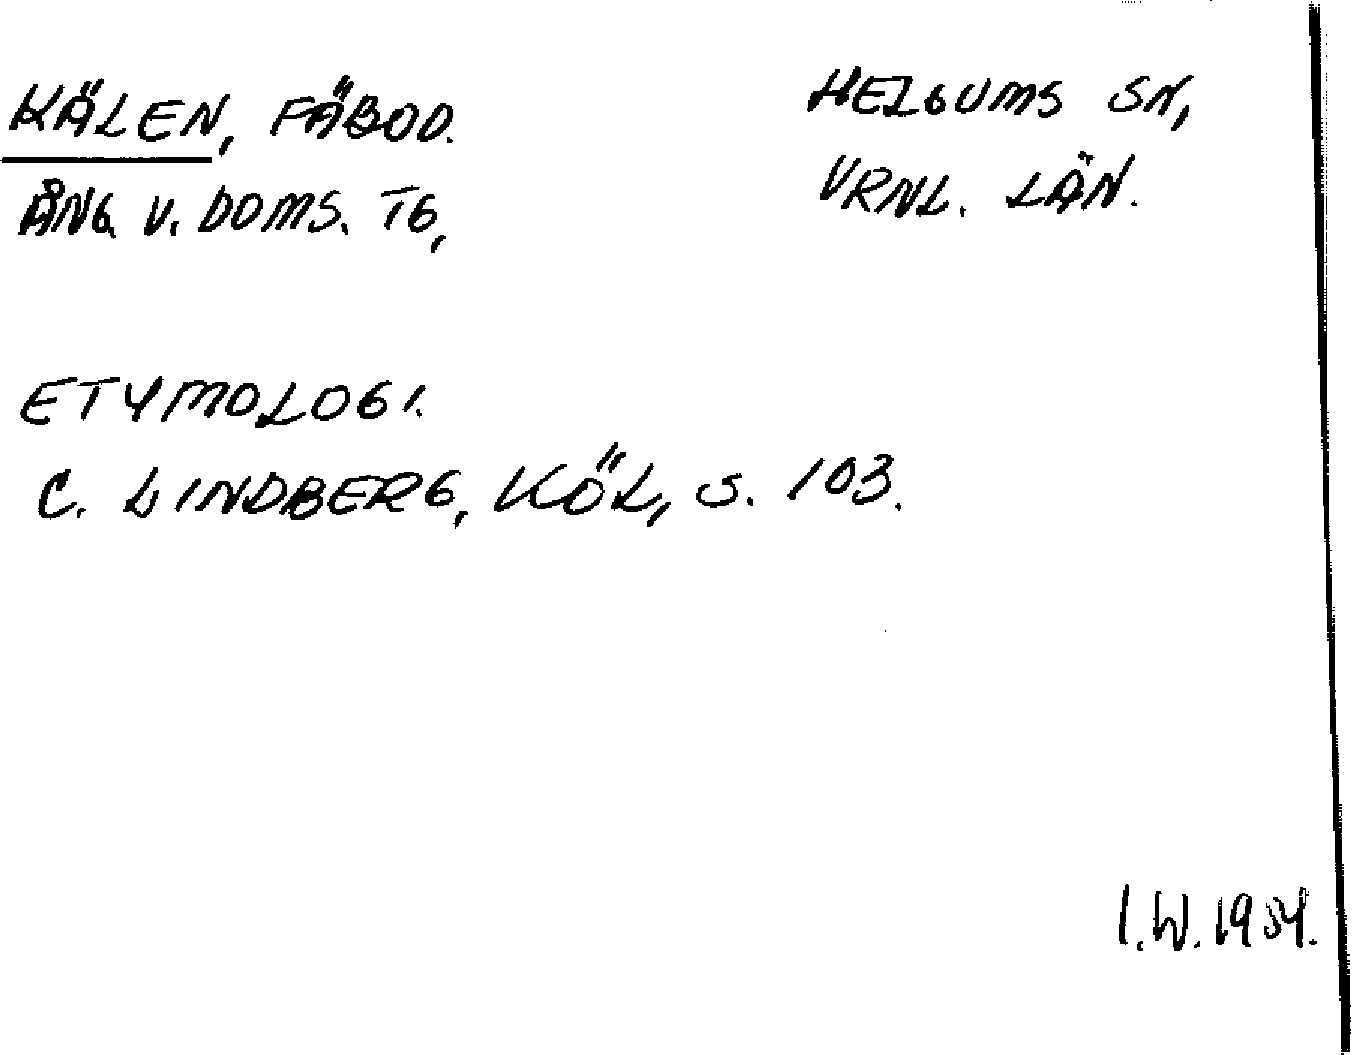 KÄLEN, FÄBOD.
ÅNG. V. DOMS. TG,
HELGUMS SN,
VRNL. LÄN.
ETYMOLOGI.
C. LINDBERG, KÖL, S. 103.
I.W. 1954.